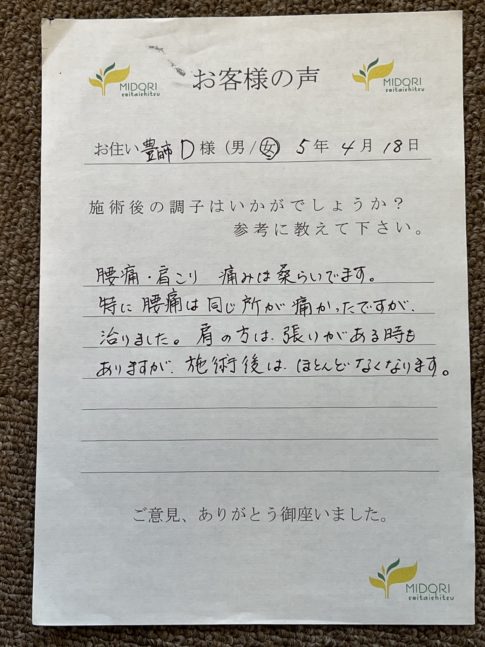 MIDORI
seitaichitsu
お客様の声
MIDORI
seitaichitsu
お住い 豊中市 D 様 (男/女) 5年 4月 18日
施術後の調子はいかがでしょうか？
参考に教えて下さい。
腰痛・肩こり 痛みは柔らいでます。
特に腰痛は同じ所が痛かったですが、
治りました。肩の方は、張りがある時も
ありますが、施術後は、ほとんどなくなります。
ご意見、ありがとう御座いました。
MIDORI
seitaichitsu